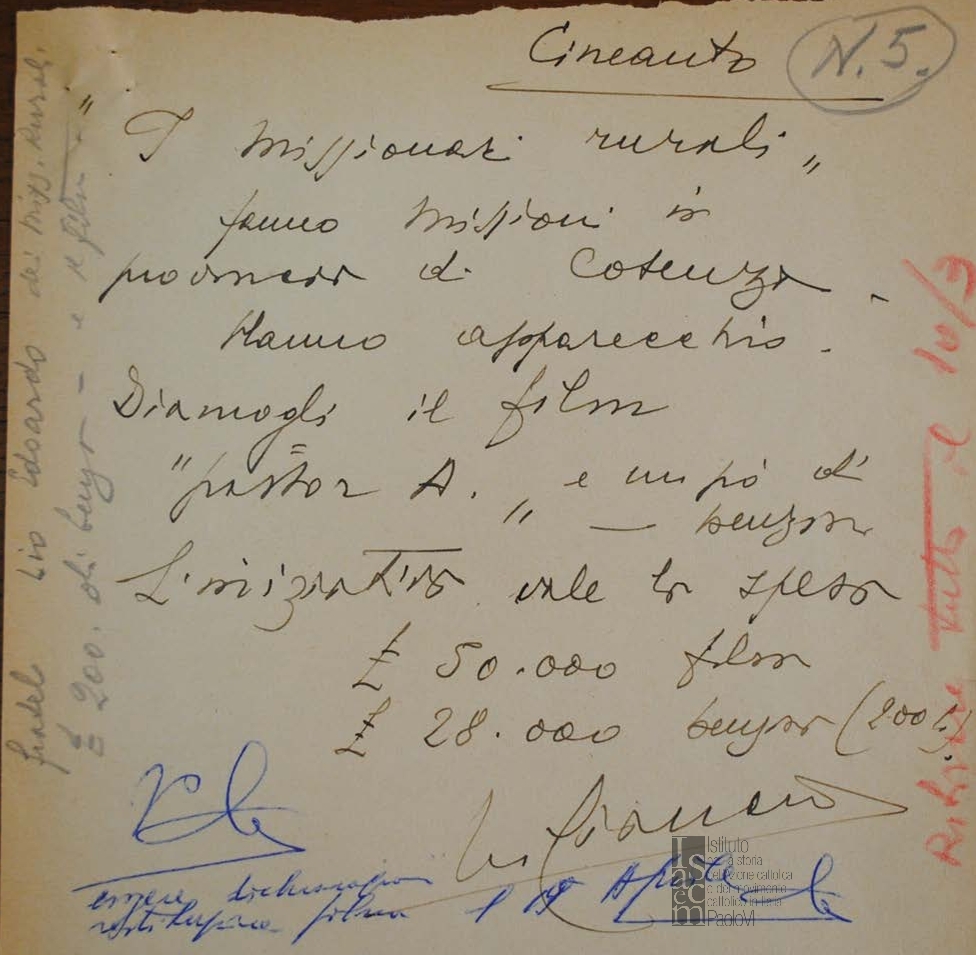 Cineauto
N. 5.
"I Missionari rurali"
fanno Missioni in
provincia di Cosenza.
Hanno apparecchio.
Diamogli il film
"pastor A." e un pò di
— benzina
L'iniziativa vale la spesa
£ 50.000 film
£ 28.000 benzina (200 l.)
essere dichiarazione
restituzione film
Aprile
fratel Lio Edoardo dei Miss. Rurali
£ 200. di benza — e il film —"
tutto il 10/3
Istituto
per la storia
dell'azione cattolica
e del movimento
cattolico in Italia
PaoloVI